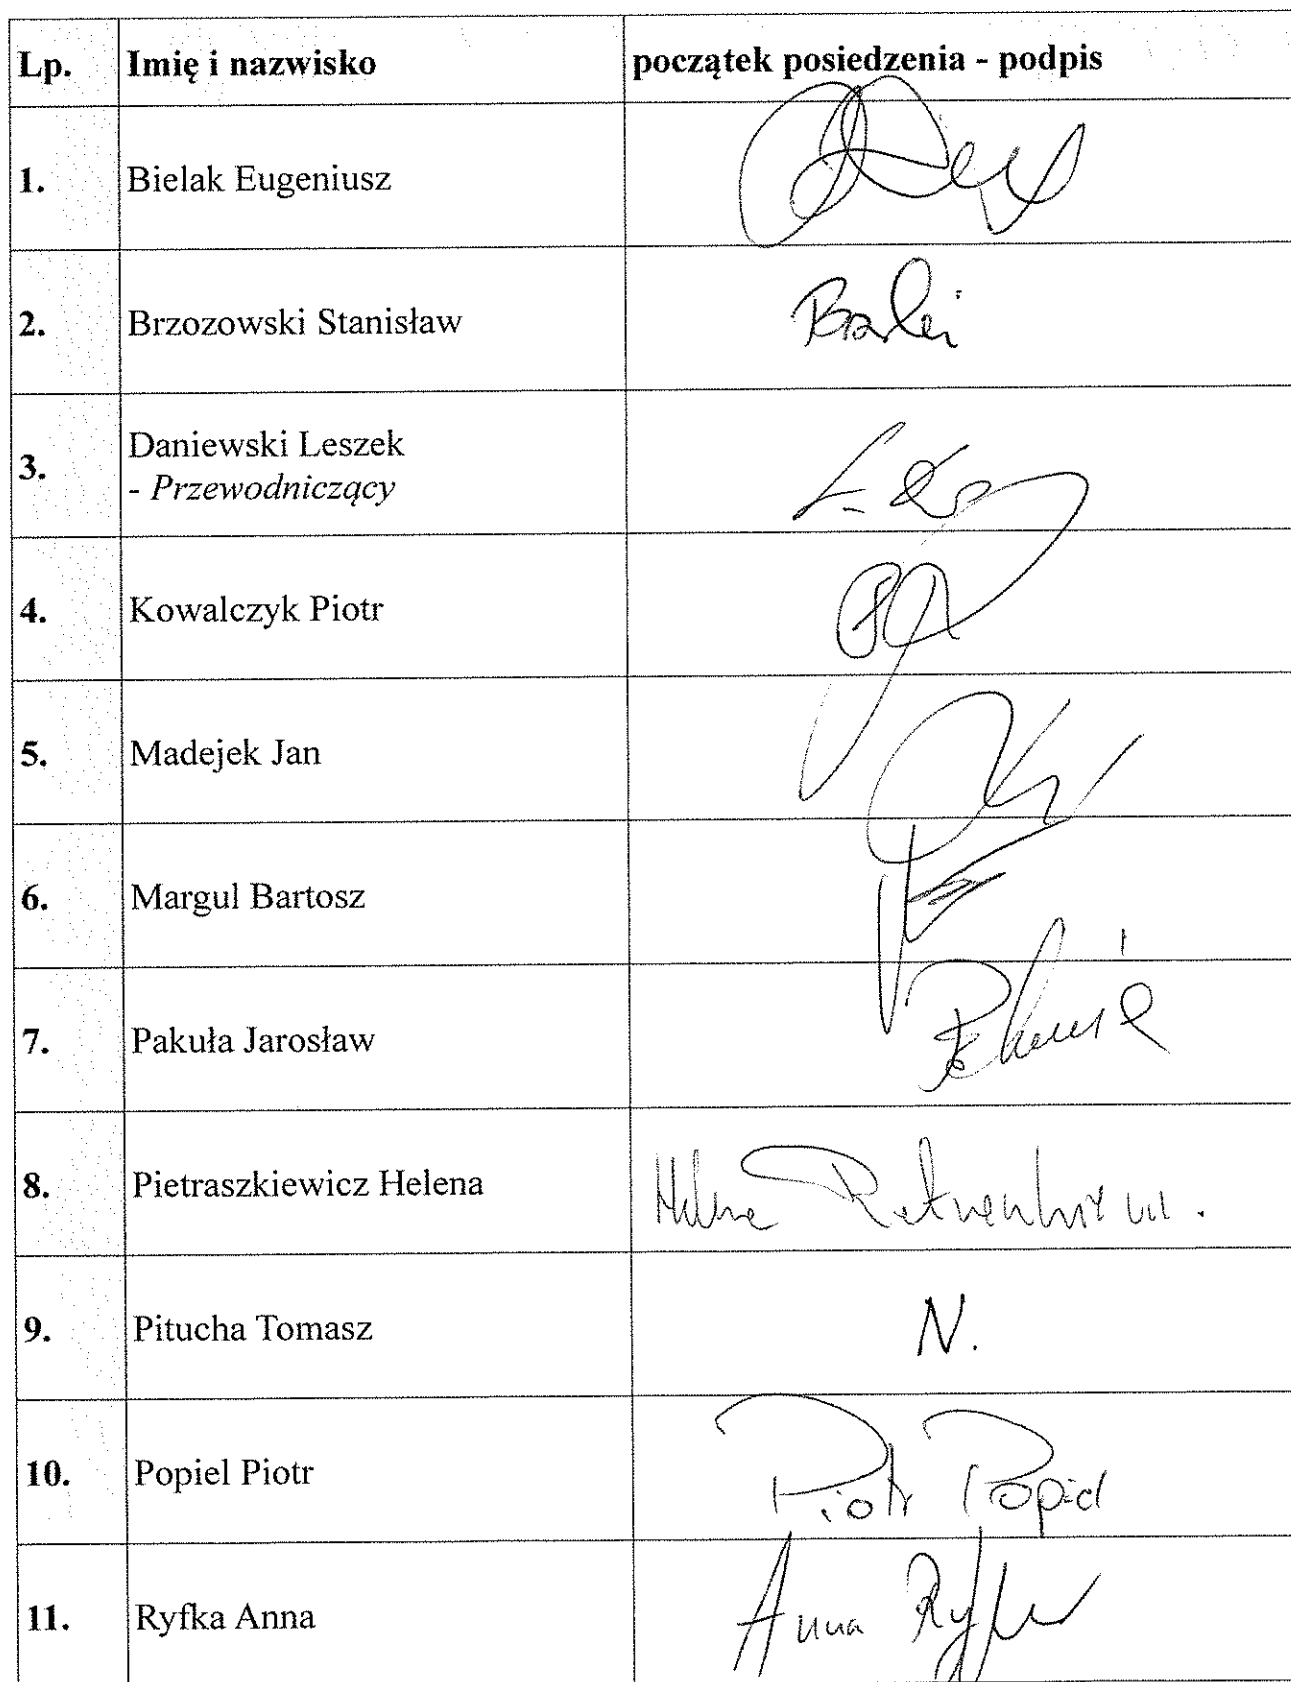 Lp. Imię i nazwisko początek posiedzenia - podpis
1. Bielak Eugeniusz
2. Brzozowski Stanisław
3. Daniewski Leszek
- Przewodniczący
4. Kowalczyk Piotr
5. Madejek Jan
6. Margul Bartosz
7. Pakuła Jarosław
8. Pietraszkiewicz Helena Helena
9. Pitucha Tomasz N.
10. Popiel Piotr Piotr Popiel
11. Ryfka Anna Anna Ryfka